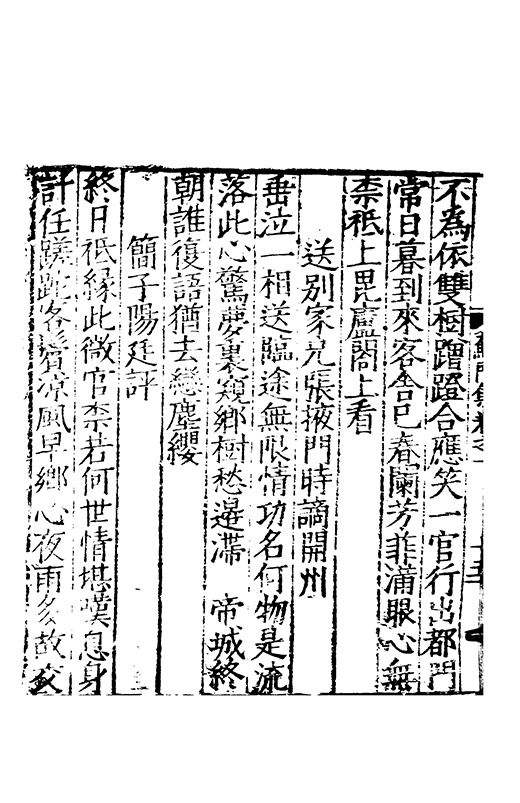 不為依雙樹蹭蹬合應笑一官行出都門
常日暮到來客舍已春闌芳菲滿眼心無
柰秪上毘盧閣上看
送別家兄張掖門時謫開州
垂泣一相送臨途無限情功名何物是流
落此心驚夢裏窺鄉樹愁邊滯 帝城終
朝誰復語猶去戀塵纓
簡子陽廷評
終日秪緣此微官柰若何世情堪嘆息身
計任蹉跎客鬢涼風早鄉心夜雨多故交